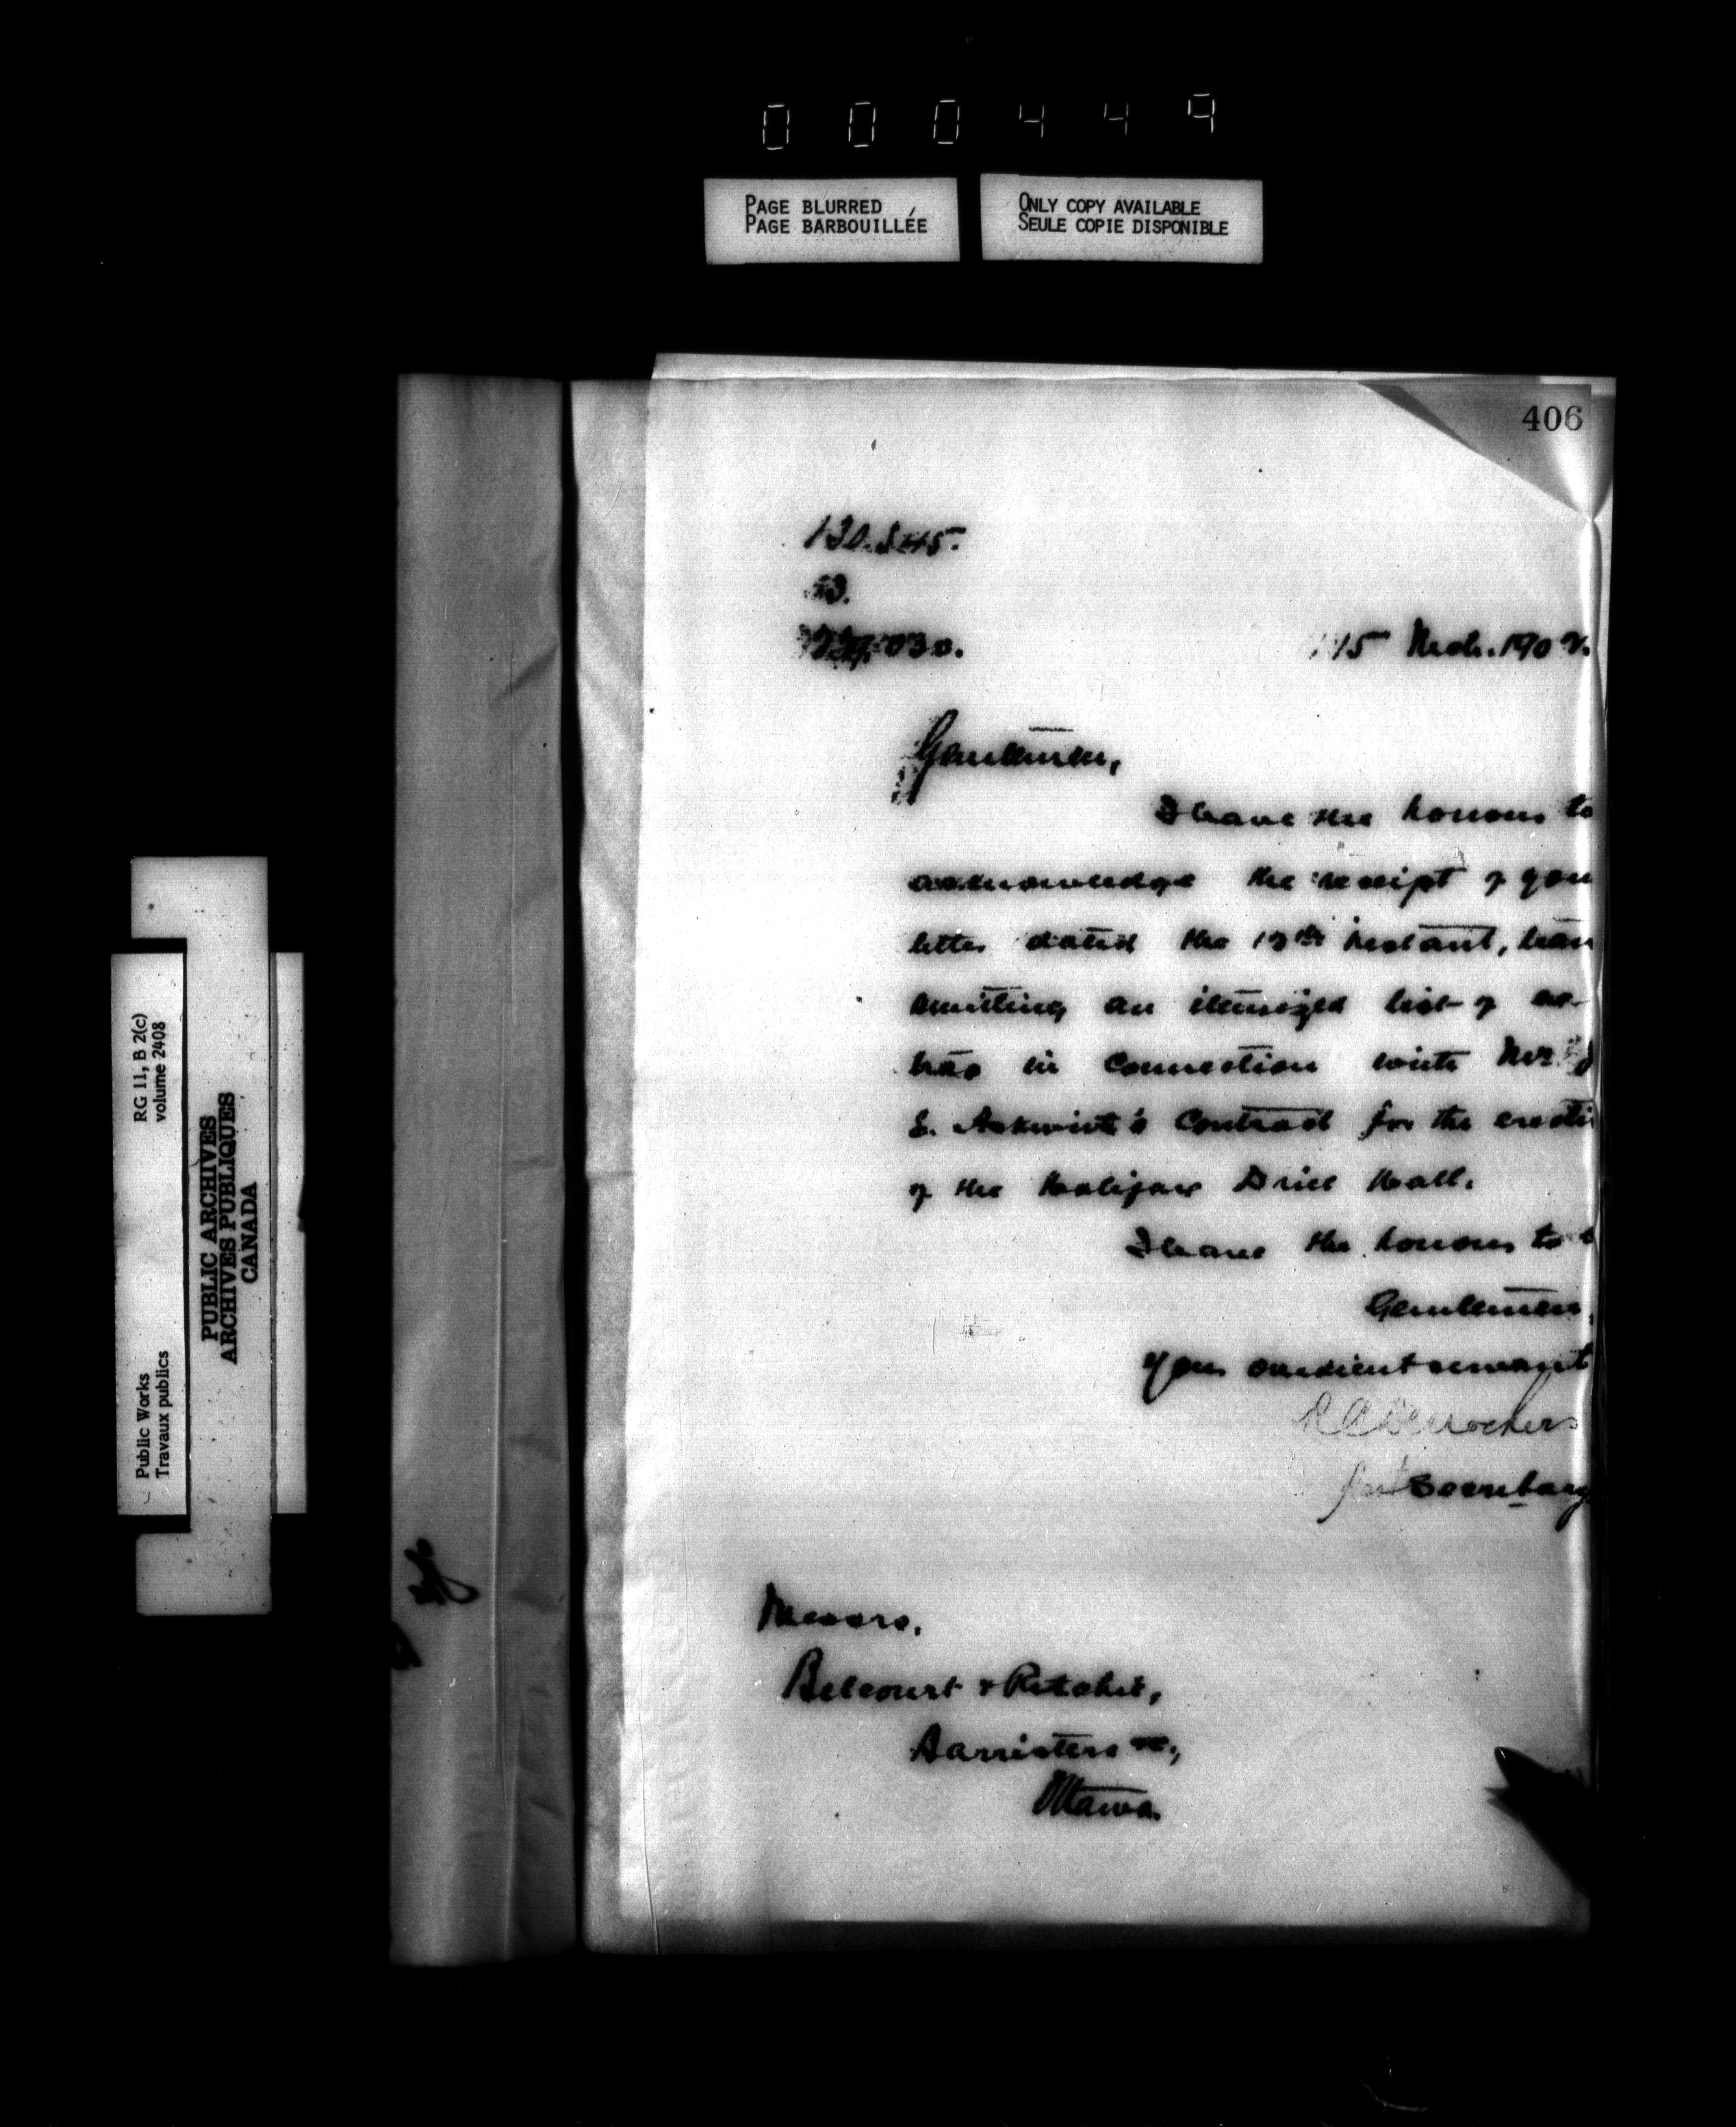 000449
PAGE BLURRED
PAGE BARBOUILLÉE
ONLY COPY AVAILABLE
SEULE COPIE DISPONIBLE
406
15 Mch. 190
Gentlemen,
I have the honour to
acknowledge the receipt of you
letter dated the 13th instant, tran
smitting an itemized list of
in connection with Mr.
E. Askwith's contract for the erecti
of the Halifax Drill Hall.
I have the honour to
Gentlemen,
Your obedient servant
RC Desrochers
Secretary
Messrs.
Belcourt & Ritchie,
Barristers &c.,
Ottawa.
RG 11, B 2(c)
volume 2408
Public Works
Travaux publics
PUBLIC ARCHIVES
ARCHIVES PUBLIQUES
CANADA